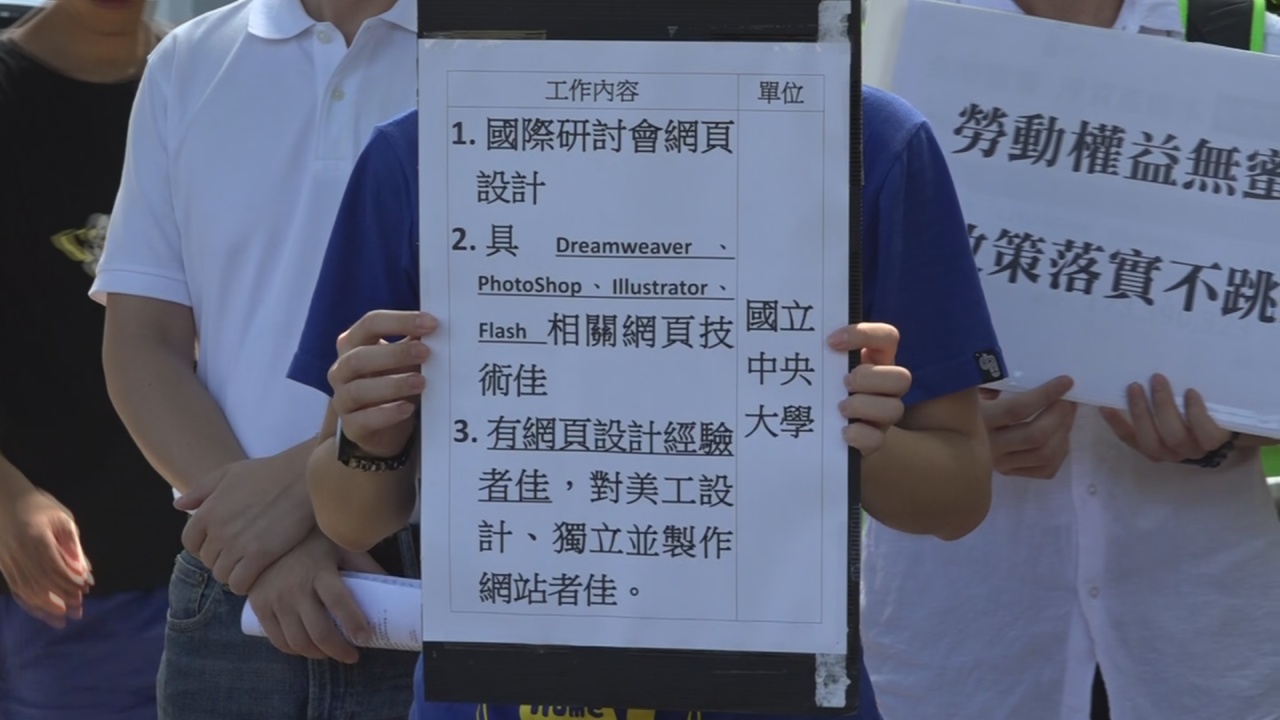 工作內容 單位
1. 國際研討會網頁
設計
2. 具 Dreamweaver 、
PhotoShop 、 Illustrator 、
Flash 相關網頁技
術佳
3. 有網頁設計經驗
者佳，對美工設
計、獨立並製作
網站者佳。
國立
中央
大學
勞動權益無蜜
政策落實不跳
Home